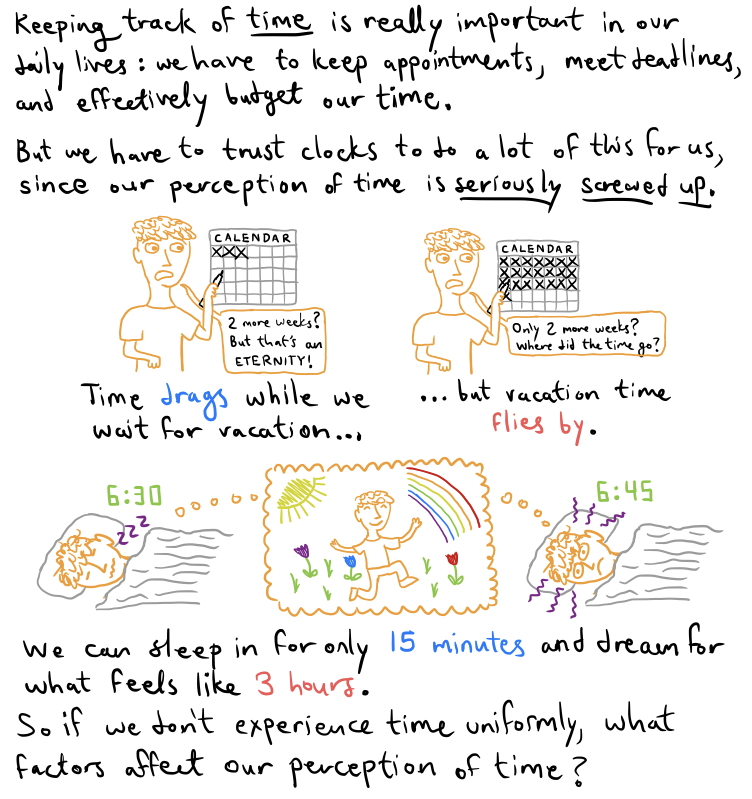 Keeping track of time is really important in our
daily lives: we have to keep appointments, meet deadlines,
and effectively budget our time.
But we have to trust clocks to do a lot of this for us,
since our perception of time is seriously screwed up.
CALENDAR
XXX
2 more weeks?
But that's an
ETERNITY!
Time drags while we
wait for vacation...
CALENDAR
XXXXXX
XXXXXX
XXXXXX
X
Only 2 more weeks?
Where did the time go?
...but vacation time
flies by.
6:30
zzz
6:45
We can sleep in for only 15 minutes and dream for
what feels like 3 hours.
So if we don't experience time uniformly, what
factors affect our perception of time?